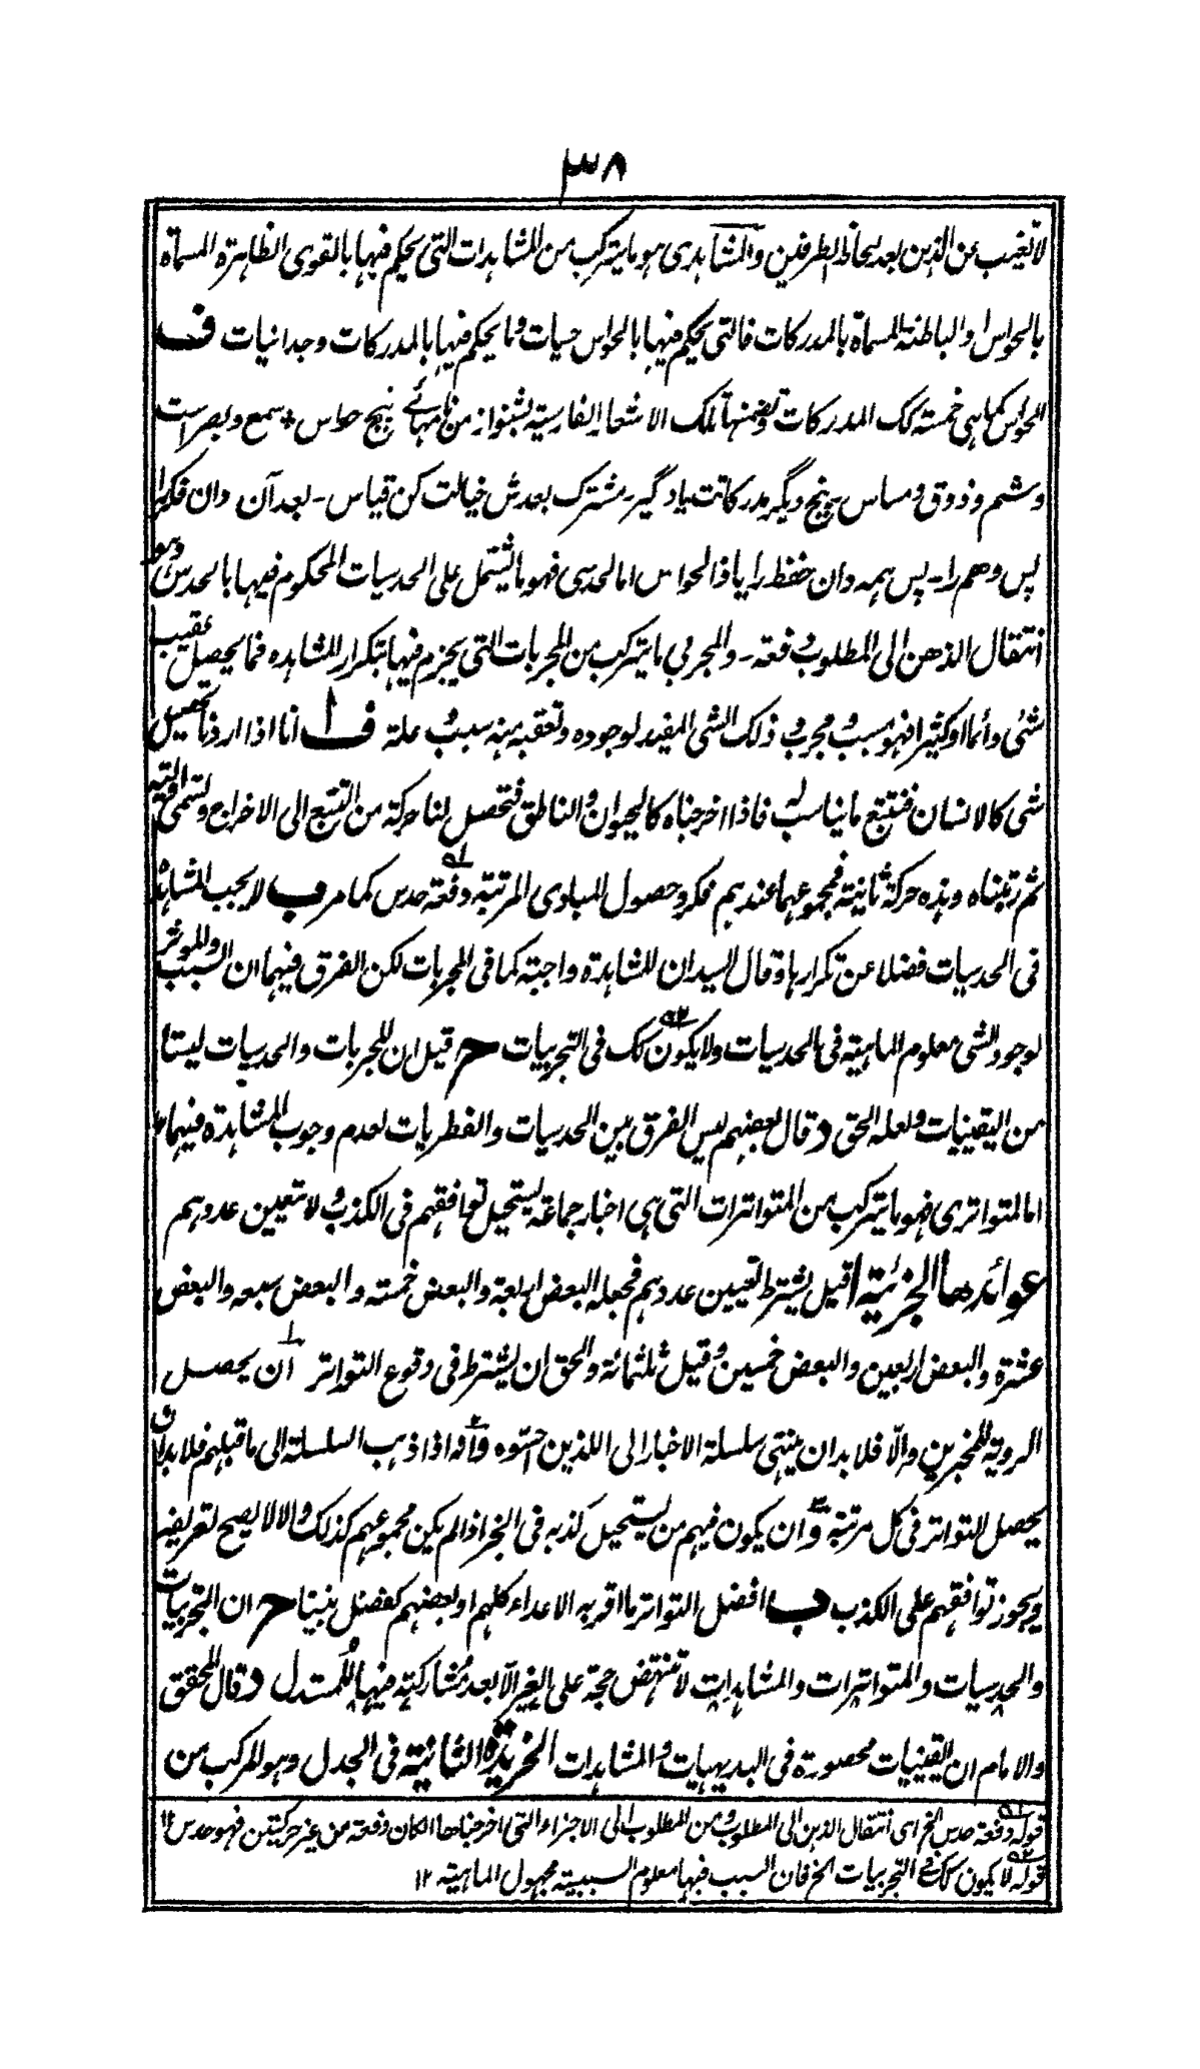 ٣٨
لا تغيب عن الذہن بعد لحاظ الطرفين والمشاہدی ہو ما يتركب من المشاہدات التی يحكم فيہا بالقوی الظاہرة المسماة
بالحواس او الباطنة المسماة بالمدركات فالتی يحكم فيہا بالحواس حسيات وما يحكم فيہا بالمدركات وجدانيات ف
الحواس كما ہی خمسة كك المدركات وتضمنہا تلك الاشعار الفارسية بشنواز من نامہائے پنج حواس + سمع وبصر است
وشم وذوق ومساس - پنج ديگر مدركاتت ياد گير - مشترك بعدش خيالت كن قياس - بعد آن دان فكر را
پس وهم را - پس ہمہ دان حفظ را يا ذا الحواس اما الحدسی فهو ما يشتمل علی الحدسيات المحكوم فيہا بالحدس وہو
انتقال الذهن الی المطلوب دفعة - والمجربی ما يتركب من المجربات التی يجزم فيہا بتكرار المشاہدہ فما يحصل عقيب
شیٔ دائما او كثيرا فہو مسبب ومجرب ذلك الشی المفيد لوجوده وتعقبہ منہ سبب وعلة ف ا انا اذا اردنا تحصيل
شی كالانسان فنتتبع ما يناسب لہ فاذا اخرجناه كالحيوان والناطق فتحصل لنا حركة من التتبع الی الاخراج وتسمی الاولی
ثم رتبناه وہذه حركة ثانية فمجموعہما عندہم فكر وحصول المبادی المرتبة دفعة حدس كما مر ب لا يجب المشاہدة
فی الحدسيات فضلا عن تكرارہا وقال السيدان المشاہدة واجبة كما فی المجربات لكن الفرق فيہما ان السبب والموثر
لوجود الشی معلوم الماہية فی الحدسيات ولا يكون كك فی التجربيات ح قيل ان المجربات والحدسيات ليستا
من اليقينيات ولعلہ الحق د قال بعضہم ليس الفرق بين الحدسيات والفطريات لعدم وجوب المشاہدة فيہما
اما المتواتری فہو ما يتركب من المتواترات التی ہی اخبار جماعة يستحيل توافقہم فی الكذب ولا تعيين عددہم
عوائدها الجزئية ا قيل يشترط تعيين عددہم فجعلہ البعض اربعة والبعض خمسة والبعض سبعہ والبعض
عشرة والبعض اربعين والبعض خمسين وقيل ثلثمائة والحق ان يشترط فی وقوع التواتر ان يحصل
الروية للمخبرين والّا فلا بد ان ينتہی سلسلة الاخبار الی اللذين حسّوه وانہ اذا ذہب السلسلة الی ما قبلہم فلا بد ان
يحصل التواتر فی كل مرتبة وان يكون فيہم من يستحيل كذبہ فی الخبر اذا لم يكن مجموعہم كذلك والا لا يصح تعريفہ
ويجوز توافقہم علی الكذب ب افضل التواتر ما اقر بہ الاعداء كلہم او بعضہم كفضل نبينا ح ان التجربيات
والحدسيات والمتواترات والمشاہدات لا تنتہض حجة علی الغير الّا بعد مشاركتہ فيہا للمستدل د قال المحقق
والامام ان اليقينيات محصورة فی البديہيات والمشاہدات الخريدة الثانية فی الجدل وہو المركب من
قولہ دفعة حدس الخ ای انتقال الذہن الی المطلوب ومن المطلوب الی الاجزاء التی اخرجناها ان كان دفعة من غير حركتين فہو حدس ١٢
قولہ لا يكون كك فی التجربيات الخ فان السبب فيہا معلوم السببية مجہول الماہية ١٢